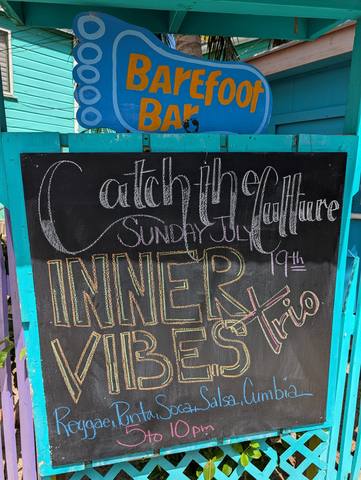 BAREfOOT
BAR
Catch the Culture
SUNDAY JULY
19th
INNER
VIBES Trio
Reggae, Punta, Soca, Salsa, Cumbia
5 to 10 pm